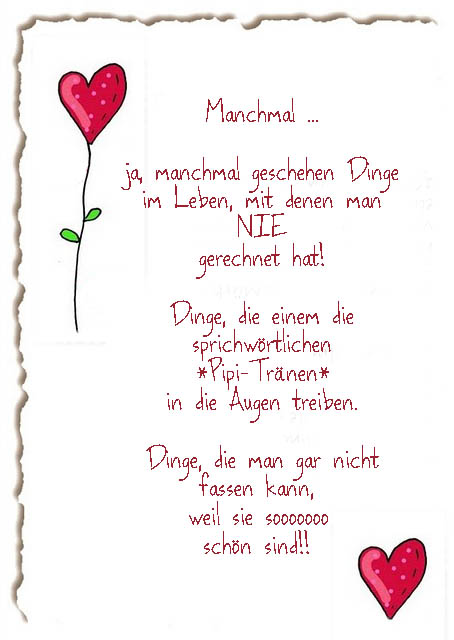 Manchmal ...
ja, manchmal geschehen Dinge
im Leben, mit denen man
NIE
gerechnet hat!
Dinge, die einem die
sprichwörtlichen
*Pipi-Tränen*
in die Augen treiben.
Dinge, die man gar nicht
fassen kann,
weil sie sooooooo
schön sind!!